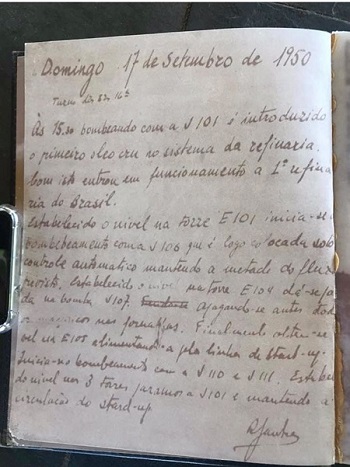 Domingo 17 de Setembro de 1950
Turno das 8 às 16 h
Às 15.30 bombeando com a J 101 é introduzido
o primeiro oleo crú no sistema da refinaria.
Com isto entrou em funcionamento a 1ª refina
ria do Brasil.
Estabelecido o nivel na torre E101 inicia-se
bombeamento com a J 106 que é logo colocada sob
controle automatico mantendo a metade do fluxo
previsto. Estabelecido o nivel na torre E104 dá-se
da na bomba J107. apagando-se antes dois
maçaricos nas fornalhas. Finalmente obtem-se
vel na E105 alimentando-a pela linha de start-up.
Inicia-se bombeamento com a J110 e J111. Estabele
do nivel nas 3 torres paramos a J101 e mantendo a
circulação do start-up